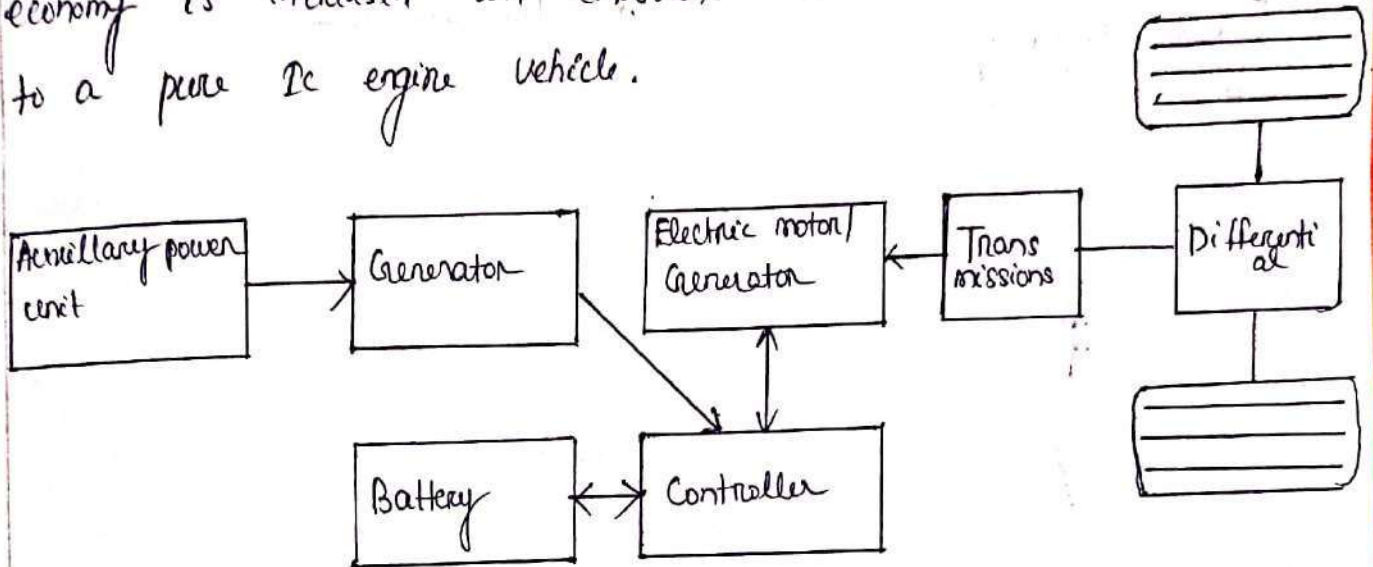 economy is increased
to a pure Ic engine vehicle.
Auxillary power
unit
Generator
Electric motor/
Generator
Trans
missions
Differenti
al
Battery
Controller